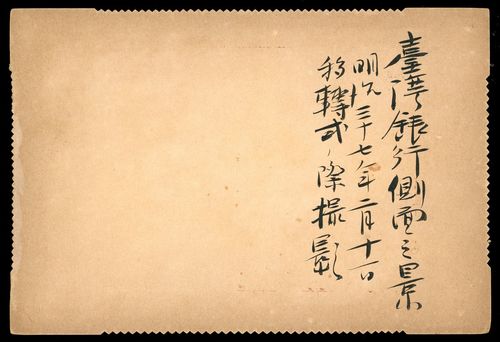 臺湾銀行側面之景
明治三十七年二月十一日
移轉式ノ際撮影